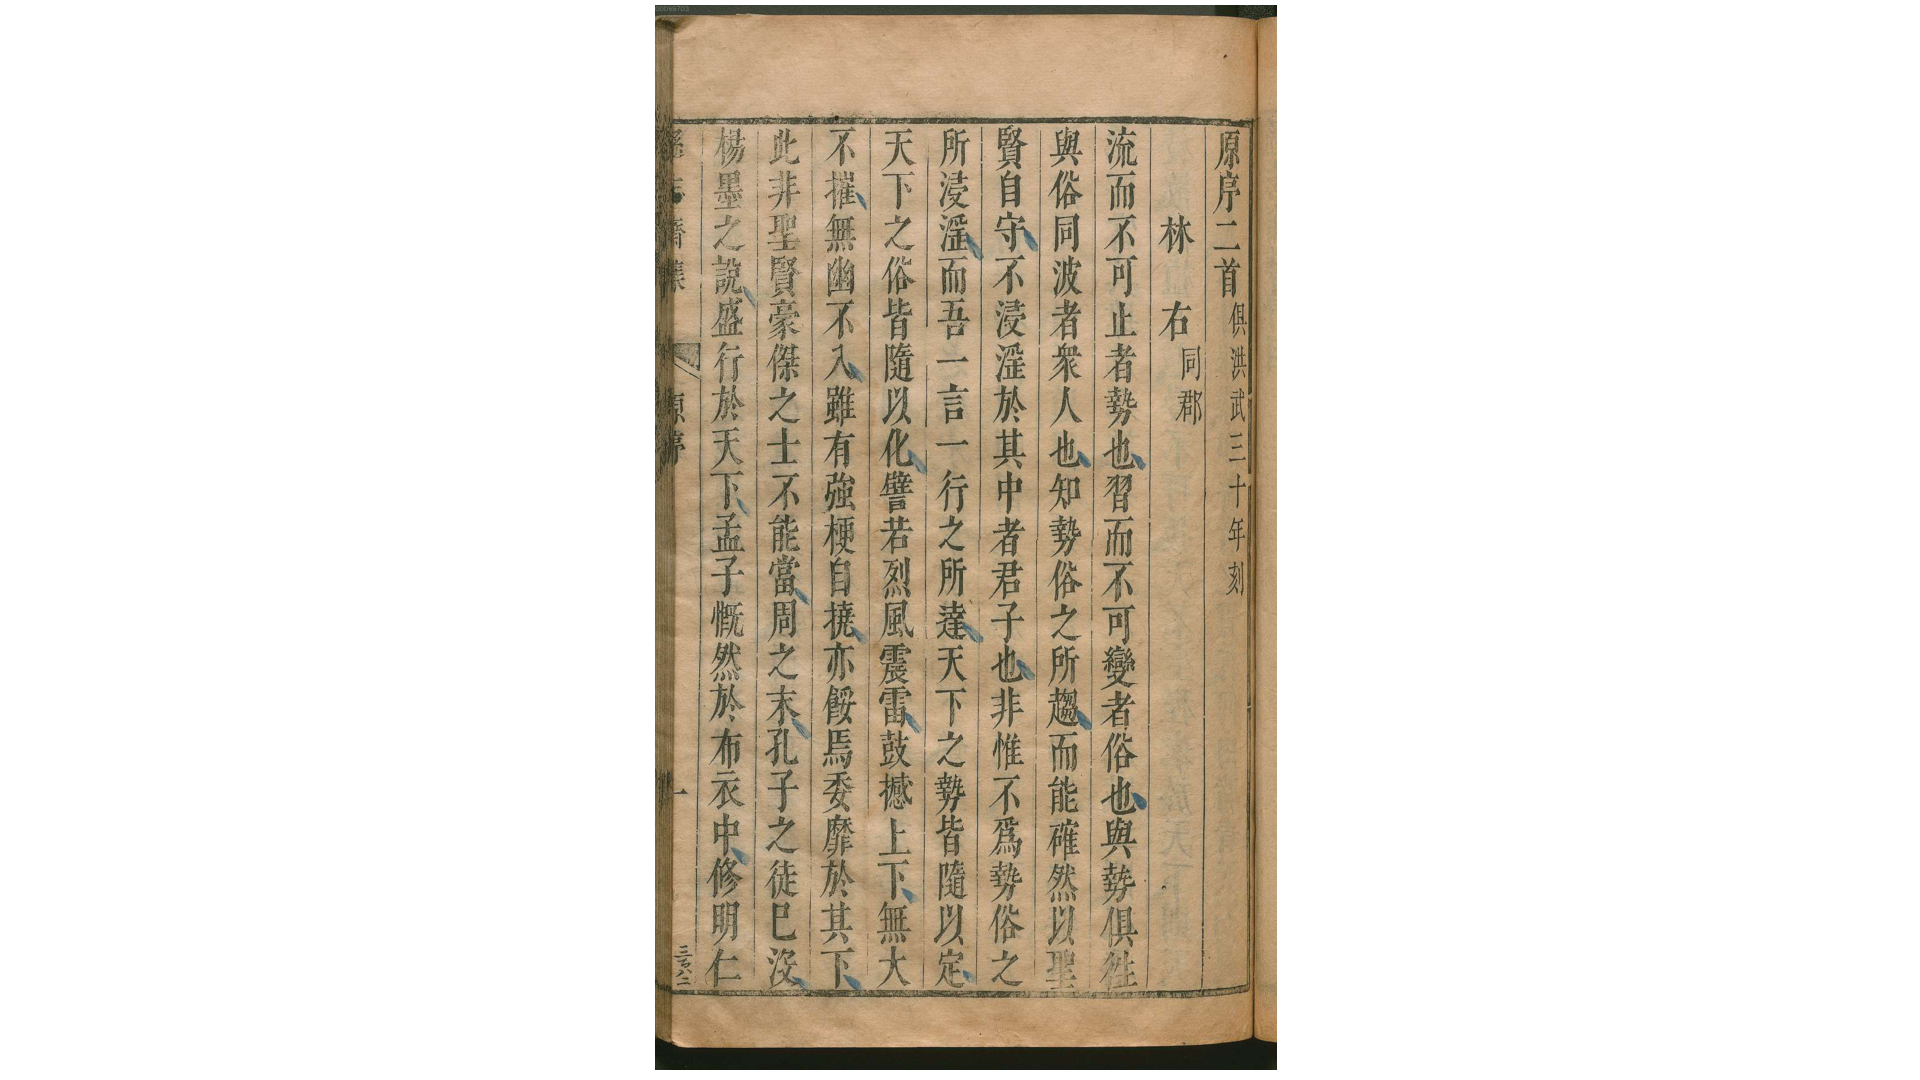 原序二首俱洪武三十年刻
林右同郡
流而不可止者勢也習而不可變者俗也與勢俱徃
與俗同波者衆人也知勢俗之所趨而能確然以聖
賢自守不浸滛於其中者君子也非惟不爲勢俗之
所浸滛而吾一言一行之所達天下之勢皆隨以定
天下之俗皆隨以化譬若烈風震雷鼓撼上下無大
不摧無幽不入雖有強梗自撓亦餒焉委靡於其下
此非聖賢豪傑之士不能當周之末孔子之徒已沒
楊墨之說盛行於天下孟子慨然於布衣中修明仁
原序
一